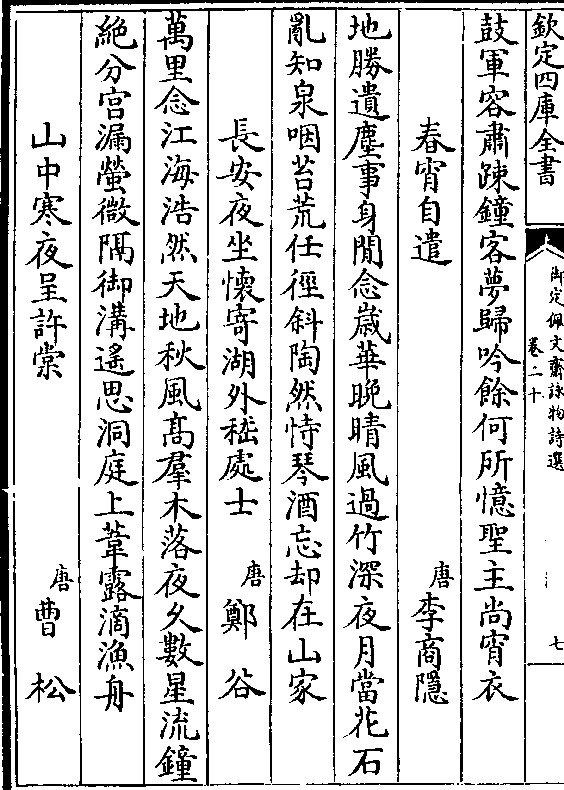 欽定四庫全書
御定佩文齋詠物詩選
卷二十
七
鼓軍容肅踈鐘客夢歸吟餘何所憶聖主尚宵衣
春宵自遣 唐 李商隱
地勝遺塵事身閒念歲華晚晴風過竹深夜月當花石
亂知泉咽苔荒任徑斜陶然恃琴酒忘却在山家
長安夜坐懷寄湖外嵇處士 唐 鄭谷
萬里念江海浩然天地秋風髙羣木落夜久數星流鐘
絶分宫漏螢微隔御溝遙思洞庭上葦露滴漁舟
山中寒夜呈許棠 唐 曹松